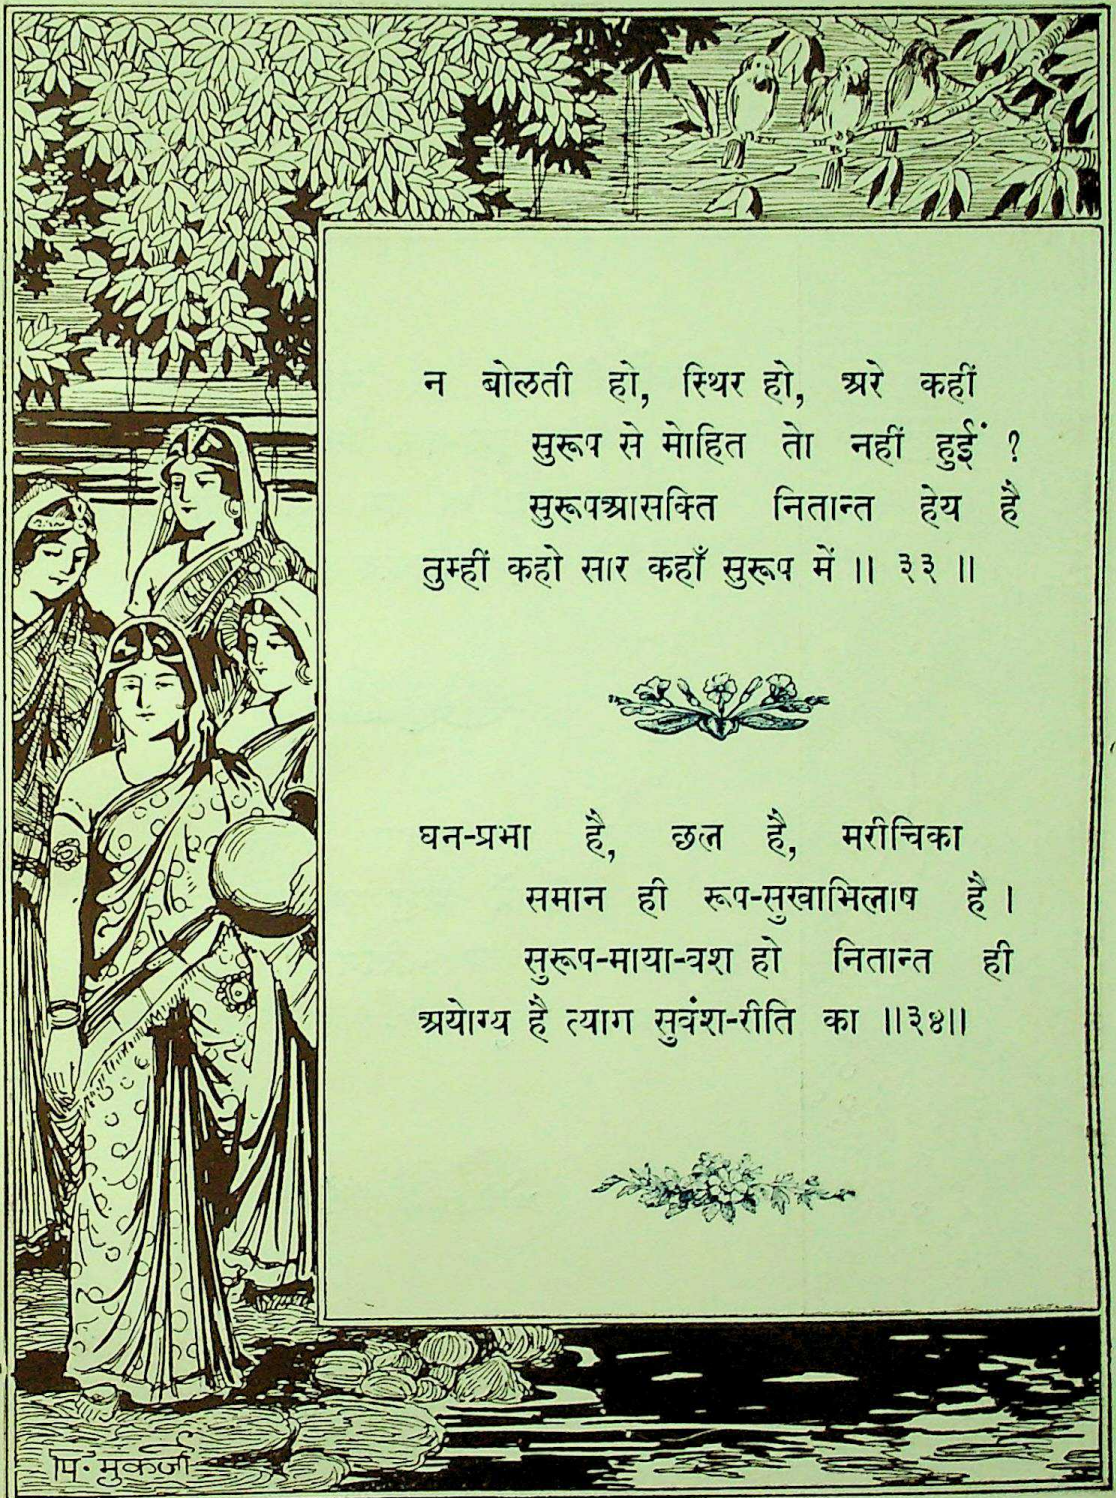 न बोलती हो, स्थिर हो, अरे कहीं
सुरूप से मोहित तो नहीं हुईं ?
सुरूपआसक्ति नितान्त हेय है
तुम्हीं कहो सार कहाँ सुरूप में ॥ ३३ ॥
घन-प्रभा है, छल है, मरीचिका
समान ही रूप-सुखाभिलाष है ।
सुरूप-माया-वश हो नितान्त ही
अयोग्य है त्याग सुवंश-रीति का ॥३४॥
पि. मुकर्जी